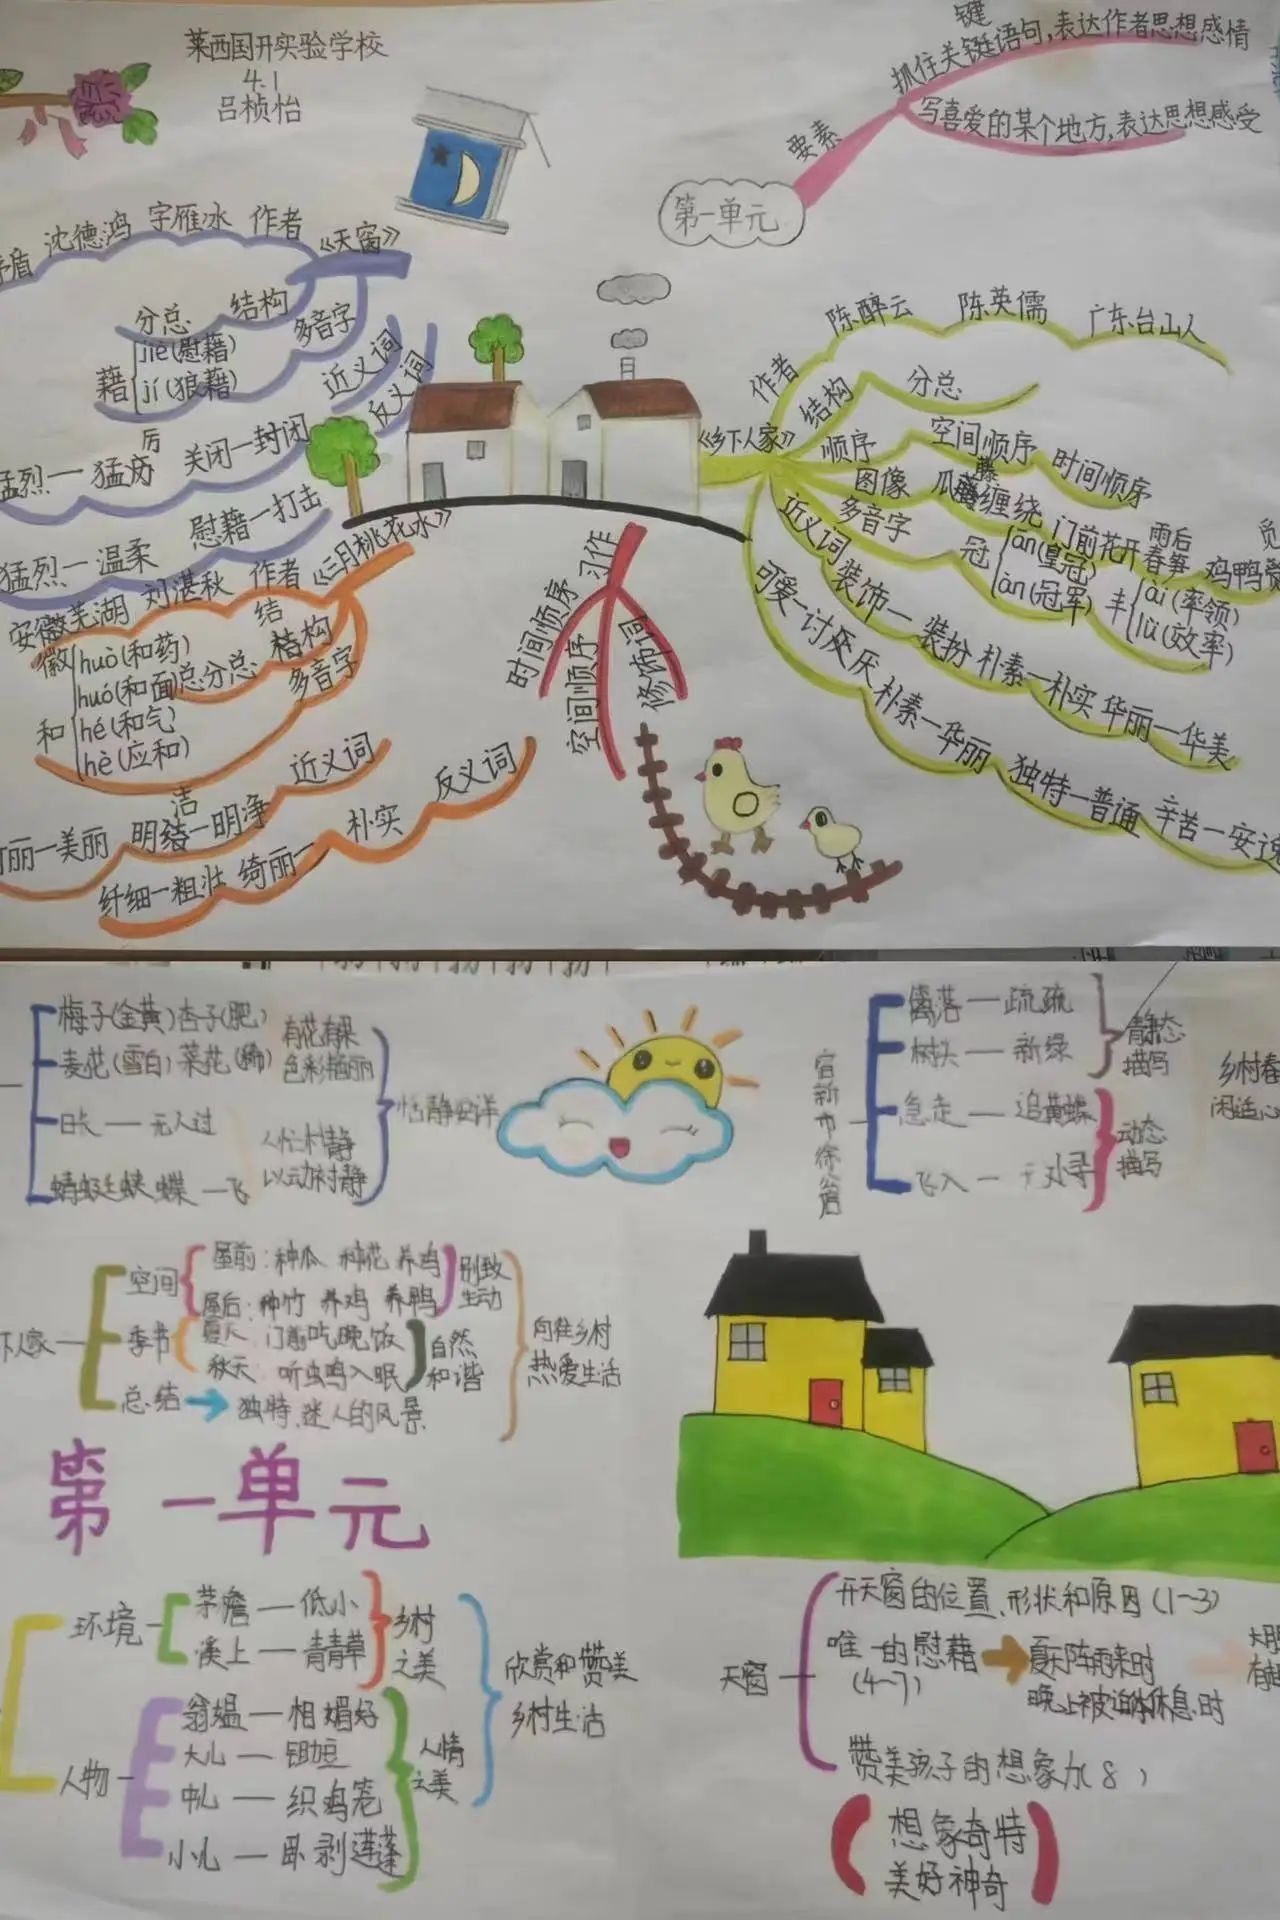 莱西国开实验学校
4.1
吕桢怡
键
抓住关键语句,表达作者思想感情
写喜爱的某个地方,表达思想感受
要素
第一单元
《天窗》
作者 字雁冰 沈德鸿
结构 分总
多音字
藉 jiè(慰藉)
jí(狼藉)
近义词
厉
关闭一封闭
猛烈一猛
反义词
慰藉一打击
猛烈一温柔
《三月桃花水》
作者 刘湛秋 安徽芜湖
徽
结
结构 总分总
多音字
和 huò(和药)
huó(和面)
hé(和气)
hè(应和)
近义词
洁
明 一明净
丽一美丽
反义词
朴实
绮丽一
纤细一粗壮
习作
时间顺序
空间顺序
修饰词
《乡下人家》
作者 陈醉云 陈英儒 广东台山人
结构 分总
顺序 空间顺序 时间顺序
图像 瓜藤缠绕 门前花开 雨后春笋 鸡鸭觅
多音字
冠 (皇冠)
(冠军)
率 (率领)
lǜ(效率)
近义词 装饰一装扮 朴素一朴实 华丽一华美
可爱一讨厌 朴素一华丽 独特一普通 辛苦一安逸
梅子(金黄)杏子(肥)
麦花(雪白)菜花(稀)
有花有果
色彩艳丽
日长 — 无人过
蜻蜓 蛱蝶 — 飞
人忙村静
以动衬静
恬静安详
宿新市徐公店
篱落 — 疏疏
树头 — 新绿
静态
描写
急走 — 追黄蝶
飞入 —
动态
描写
乡村春
闲适心
下人家
空间
屋前:种瓜 种花 养鸡
屋后:种竹 养鸡 养鸭
别致
生动
季节
夏天 门前吃晚饭
秋天 听虫鸣入眠
自然
和谐
总结 独特、迷人的风景
向往乡村
热爱生活
第一单元
环境
茅檐 — 低小
溪上 — 青青草
乡村
之美
人物
翁媪 — 相媚好
大儿 — 锄豆
中儿 — 织鸡笼
小儿 — 卧剥莲蓬
人情
之美
欣赏和赞美
乡村生活
天窗
开天窗的位置、形状和原因(1~3)
唯一的慰藉
(4~7)
夏天阵雨来时
晚上被迫休息时
赞美孩子的想象力(8)
想象奇特
美好神奇